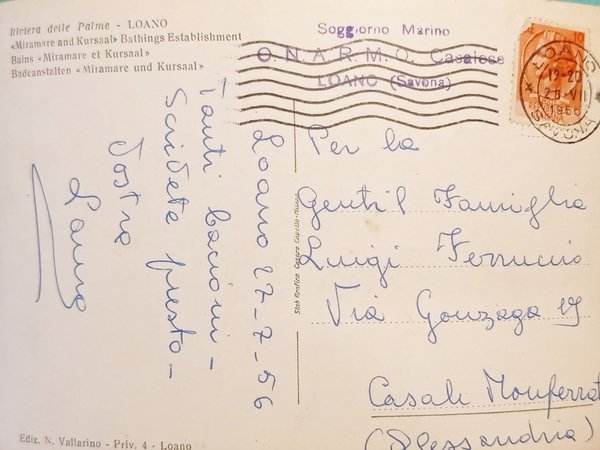 Riviera delle Palme - LOANO
«Miramare and Kursaal» Bathings Establishment
Bains «Miramare et Kursaal»
Badeanstalten «Miramare und Kursaal»
Soggiorno Marino
O.N.A.R.M.O. Casalese
LOANO (Savona)
LOANO
19-20
28.VII
1956
SAVONA
Loano 27-7-56
Tanti bacioni -
Scrivete presto -
Vostro
Per la
Gentil Famiglia
Luigi Ferruccio
Via Gonzaga 19
Casale Monferrat
(Alessandria)
Ediz. N. Vallarino - Priv. 4 - Loano